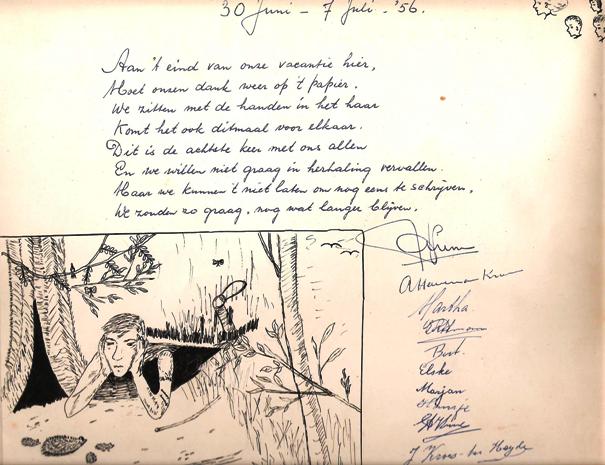 30 Juni - 7 Juli - '56.
Aan 't eind van onze vacantie hier,
Moet onzen dank weer op 't papier.
We zitten met de handen in het haar
Komt het ook ditmaal voor elkaar.
Dit is de achtste keer met ons allen
En we willen niet graag in herhaling vervallen.
Maar we kunnen 't niet laten om nog eens te schrijven,
We zouden zo graag, nog wat langer blijven.
Martha.
Bert.
Elske
Marjan